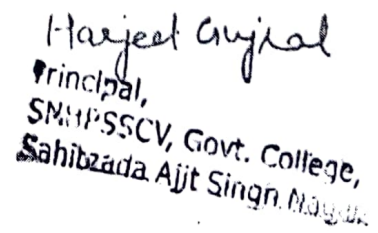 Harjeet Gujral
Principal,
SNHPSSCV, Govt. College,
Sahibzada Ajit Singh Nagar